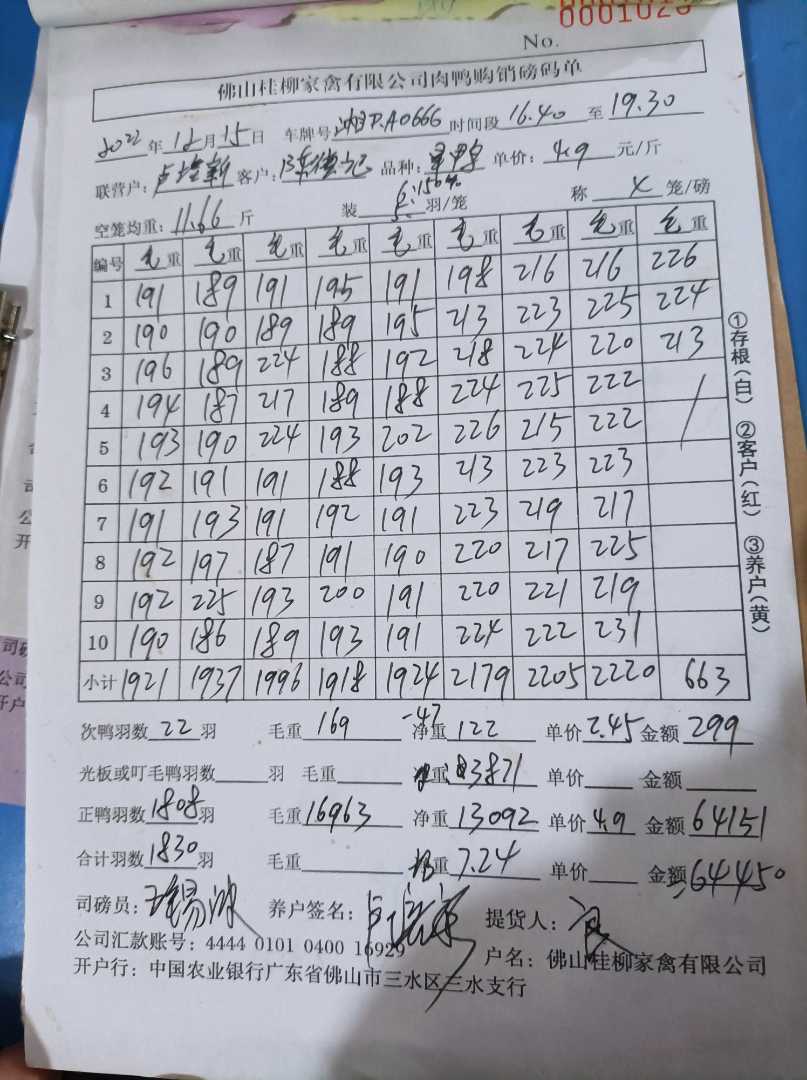 0001023
No.
佛山桂柳家禽有限公司肉鸭购销磅码单
2022年12月15日 车牌号 P.A0666 时间段 16.40 至 19.30
联营户: 客户: 品种: 单价: 4.9 元/斤
空笼均重: 11.66 斤 装 羽/笼 称 4 笼/磅
编号 毛重 毛重 毛重 毛重 毛重 毛重 毛重 毛重 毛重
1 191 189 191 195 191 198 216 216 226
2 190 190 189 189 195 213 223 225 224
3 196 189 224 188 192 218 224 220 213
4 194 187 217 189 188 224 225 222
5 193 190 224 193 202 226 215 222
6 192 191 191 188 193 213 223 223
7 191 193 191 192 191 223 219 217
8 192 197 187 191 190 220 217 225
9 192 225 193 200 191 220 221 219
10 190 186 189 193 191 224 222 231
小计 1921 1937 1996 1918 1924 2179 2205 2220 663
①存根(白) ②客户(红) ③养户(黄)
次鸭羽数 22 羽 毛重 169 -47 净重 122 单价 2.45 金额 299
光板或叮毛鸭羽数 羽 毛重 净重 3871 单价 金额
正鸭羽数 1808 羽 毛重 16963 净重 13092 单价 4.9 金额 64151
合计羽数 1830 羽 毛重 重 7.24 单价 金额 64450
司磅员: 养户签名: 提货人:
公司汇款账号: 4444 0101 0400 16929 户名: 佛山桂柳家禽有限公司
开户行: 中国农业银行广东省佛山市三水区三水支行